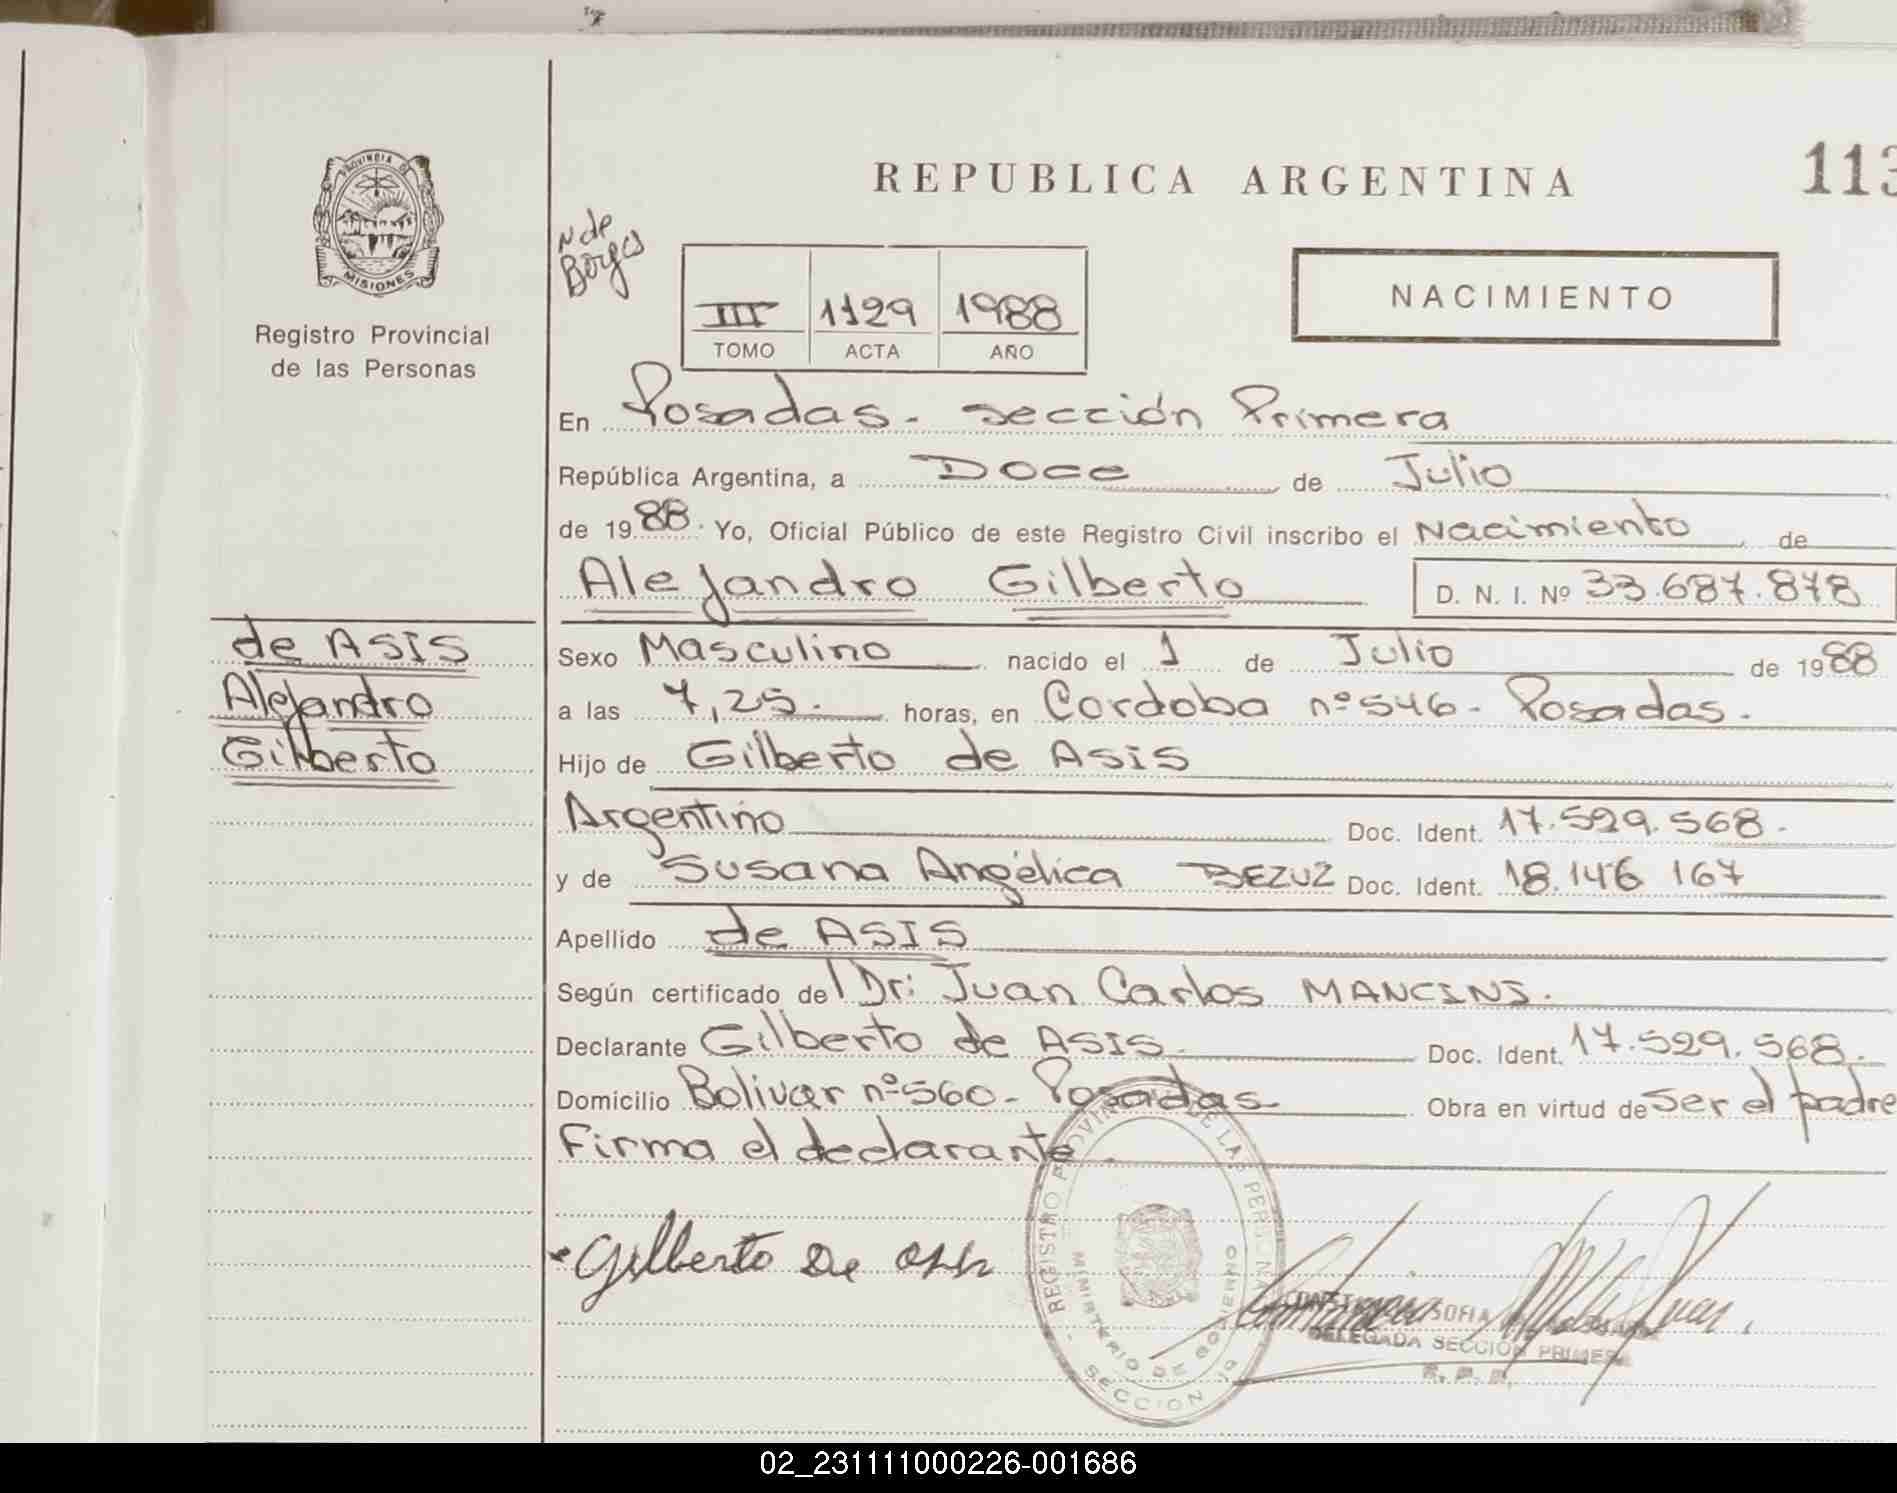 PROVINCIA DE
MISIONES
Registro Provincial
de las Personas
REPUBLICA ARGENTINA
113
N de
Borges
III 1129 1988
TOMO ACTA AÑO
NACIMIENTO
En Posadas. sección Primera
República Argentina, a Doce de Julio
de 1988. Yo, Oficial Público de este Registro Civil inscribo el Nacimiento de
Alejandro Gilberto D. N. I. Nº 33.687.878
de ASIS
Alejandro
Gilberto
Sexo Masculino nacido el 1 de Julio de 1988
a las 7,25. horas, en Cordoba nº 546. Posadas.
Hijo de Gilberto de ASIS
Argentino Doc. Ident. 17.529.568.
y de Susana Angélica BEZUZ Doc. Ident. 18.146 167
Apellido de ASIS
Según certificado del Dr: Juan Carlos MANCINI.
Declarante Gilberto de ASIS. Doc. Ident. 17.529.568.
Domicilio Bolivar nº 560. Posadas. Obra en virtud de ser el padre
Firma el declarante.
Gilberto De
REGISTRO PROVINCIAL DE LAS PERSONAS
MINISTERIO DE GOBIERNO
SECCION 1a
SOFIA
DELEGADA SECCIÓN PRIMERA
R. P. P.
02_231111000226-001686